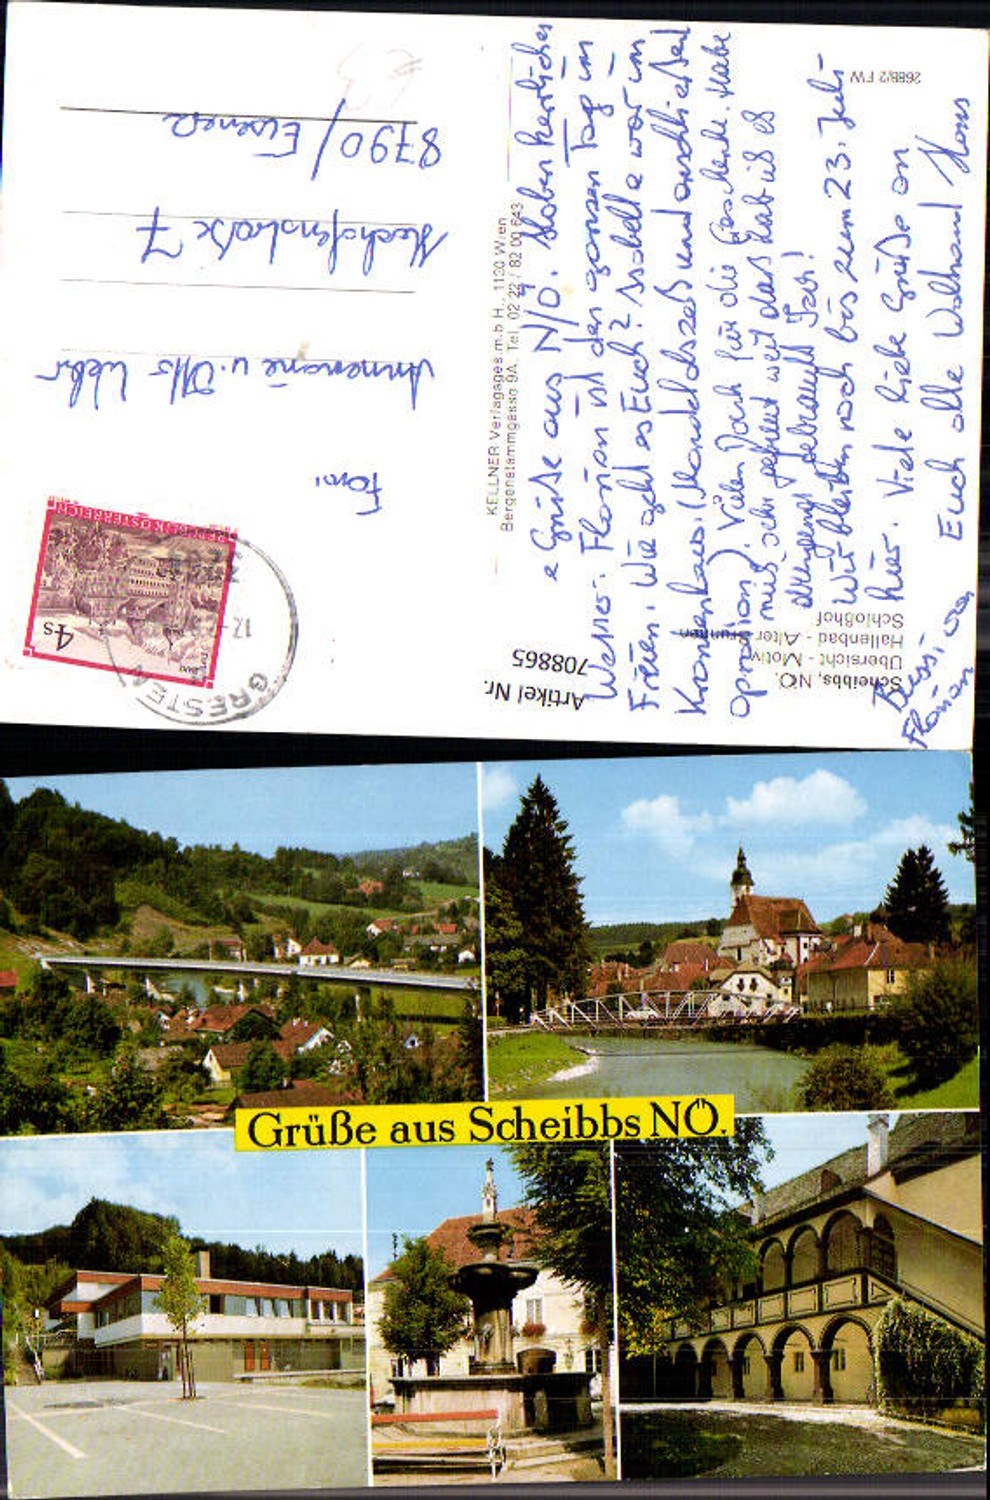 8790 / Eisenerz
Hochofenstraße 7
Annemarie u. Otto
Fam.
REPUBLIK ÖSTERREICH
4 S
GRESTEN
KELLNER Verlagsges.m.b.H., 1130 Wien
Bergenstammgasse 9A, Tel. 02 22 / 82 00 643
2688/2 FW
Artikel Nr.
708865
Scheibbs, NÖ.
Übersicht - Motiv
Hallenbad - Alter Brunnen
Schloßhof
Grüße aus N/Ö. Haben herrliches
Wetter. Florian ist den ganzen Tag im
Freien. Wie geht es Euch? Isabella war im
Krankenhaus (Mandelabszeß und anschließend
Operation). Vielen Dank für die Geschenke. Habe
mich sehr gefreut weil das hab ich
dringend gebraucht
Wir bleiben noch bis zum 23. Juli
hier. Viele liebe Grüße an
Euch alle
Bussi
Florian
Grüße aus Scheibbs NÖ.